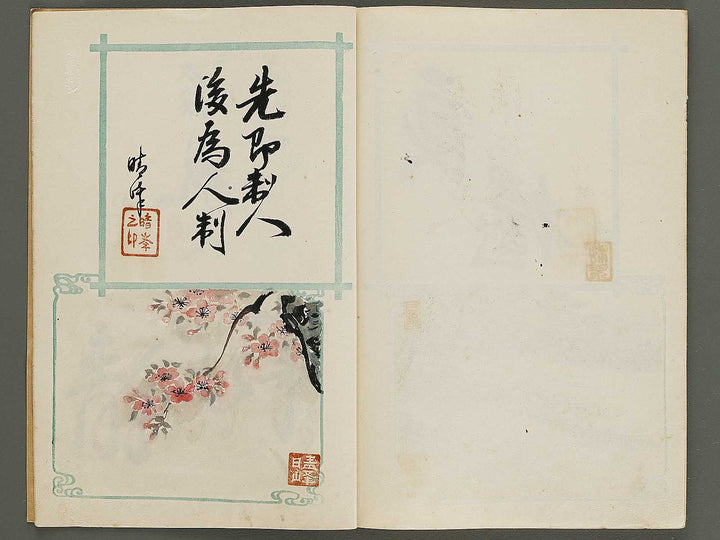 先即制人
後為人制
晴峯
晴峯之印